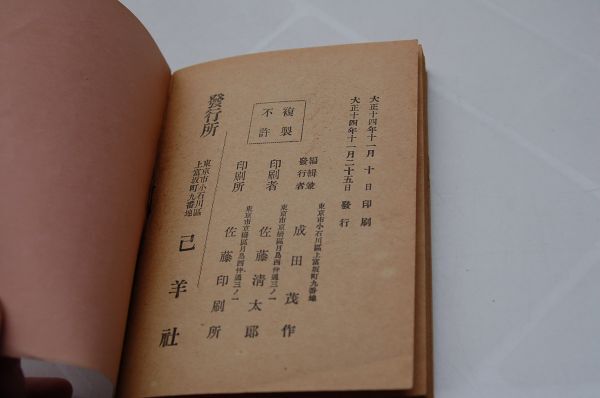 大正十四年十一月十日印刷
大正十四年十一月二十五日發行
複製
不許
東京市小石川區上富坂町九番地
編輯兼
發行者
成田茂作
東京市京橋區月島西仲通三ノ一
印刷者
佐藤清太郎
東京市京橋區月島西仲通三ノ一
印刷所
佐藤印刷所
發行所
東京市小石川區
上富坂町九番地
己羊社